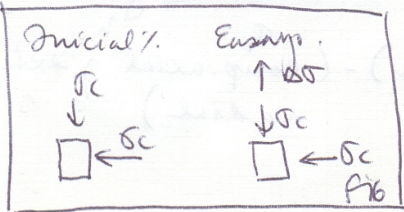 Inicial%. Ensayo.
σc ↑ Δσ
↓ ↓σc
□ ←σc □ ←σc
fig